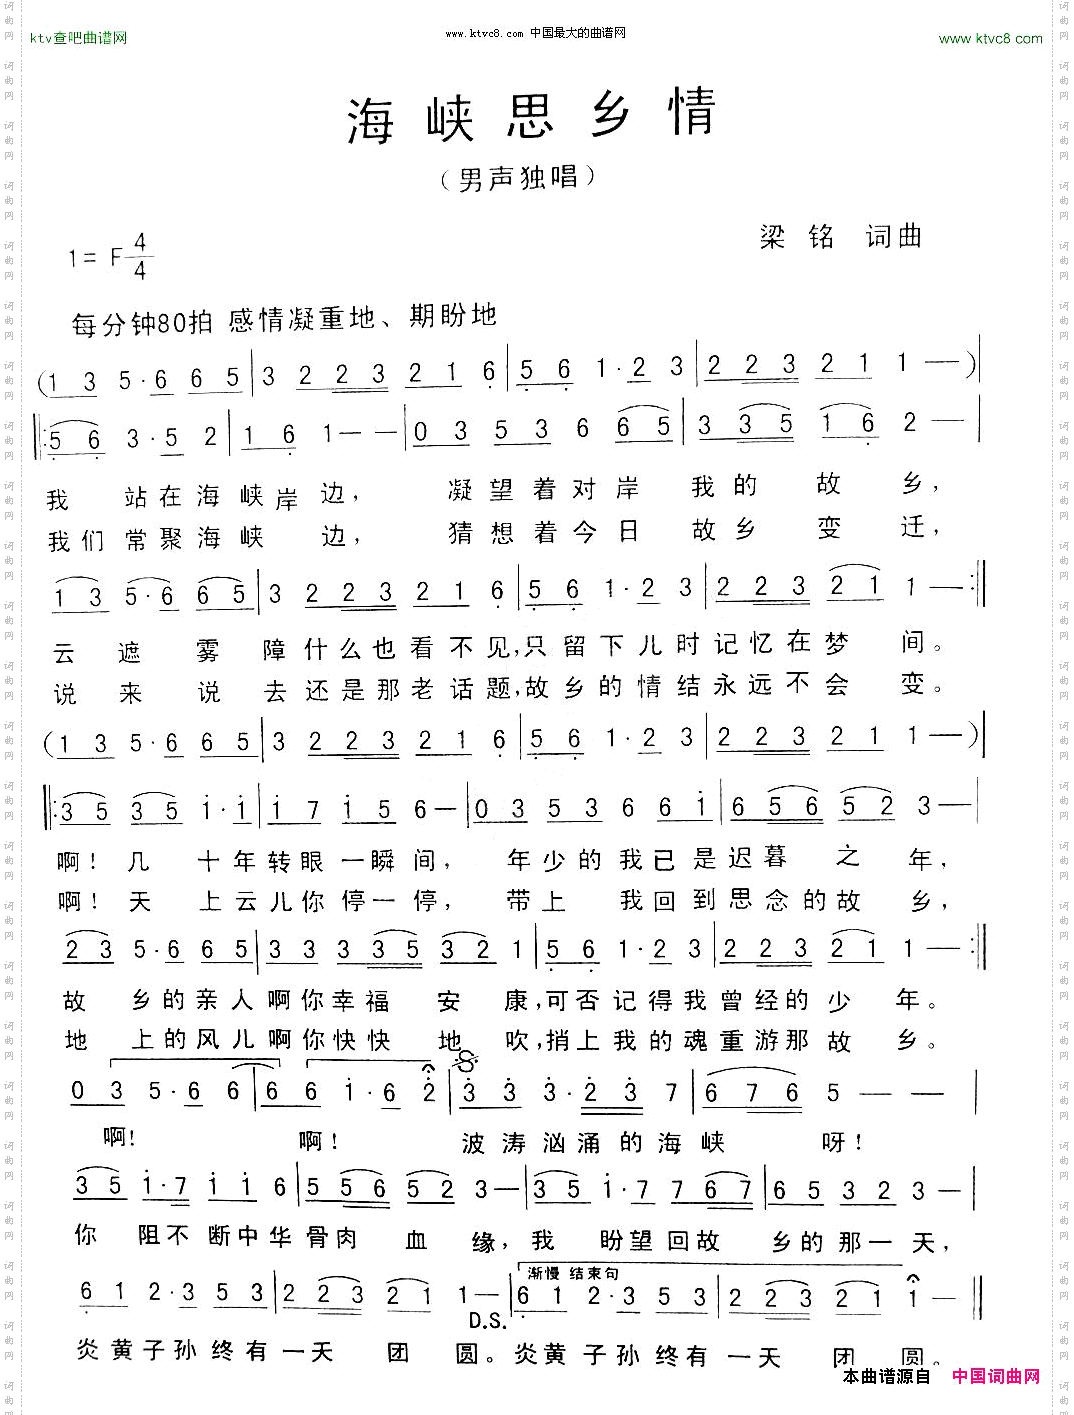 ktv查吧曲谱网
www.ktvc8.com 中国最大的曲谱网
www ktvc8 com
海峡思乡情
（男声独唱）
梁铭 词曲
1= F 4/4
每分钟80拍 感情凝重地、期盼地
(1 3 5·6 6 5 | 3 2 2 3 2 1 6 | 5 6 1·2 3 | 2 2 3 2 1 1 — )|
‖: 5 6 3·5 2 | 1 6 1 — — | 0 3 5 3 6 6 5 | 3 3 5 1 6 2 — |
我 站在海峡岸边， 凝望着对岸 我的故乡，
我们常聚海峡 边， 猜想着今日 故乡变迁，
1 3 5·6 6 5 | 3 2 2 3 2 1 6 | 5 6 1·2 3 | 2 2 3 2 1 1 — :‖
云遮雾障什么也看不见，只留下儿时记忆在梦间。
说来说去还是那老话题，故乡的情结永远不会变。
(1 3 5·6 6 5 | 3 2 2 3 2 1 6 | 5 6 1·2 3 | 2 2 3 2 1 1 — )|
‖: 3 5 3 5 i·i | i 7 i 5 6 — | 0 3 5 3 6 6 i | 6 5 6 5 2 3 — |
啊！几 十年转眼一瞬间， 年少的我已是迟暮之年，
啊！天 上云儿你停一停， 带上 我回到思念的故乡，
2 3 5·6 6 5 | 3 3 3 3 5 3 2 1 | 5 6 1·2 3 | 2 2 3 2 1 1 — :‖
故 乡的亲人啊你幸福安康，可否记得我曾经的少年。
地 上的风儿啊你快快地吹，捎上我的魂重游那故乡。
0 3 5·6 6 | 6 6 i·6 2 | 3 3 3·2 3 7 | 6 7 6 5 — — |
啊！ 啊！ 波涛汹涌的海峡 呀！
3 5 i·7 i i 6 | 5 5 6 5 2 3 — | 3 5 i·7 7 6 7 | 6 5 3 2 3 3 — |
你 阻不断中华骨肉血缘，我 盼望回故乡的那一天，
渐慢 结束句
6 1 2·3 5 3 | 2 2 3 2 1 1 — | 6 1 2·3 5 3 | 2 2 3 2 1 1 — ‖
D.S.
炎黄子孙终有一天团圆。炎黄子孙终有一天团圆。
本曲谱源自 中国词曲网